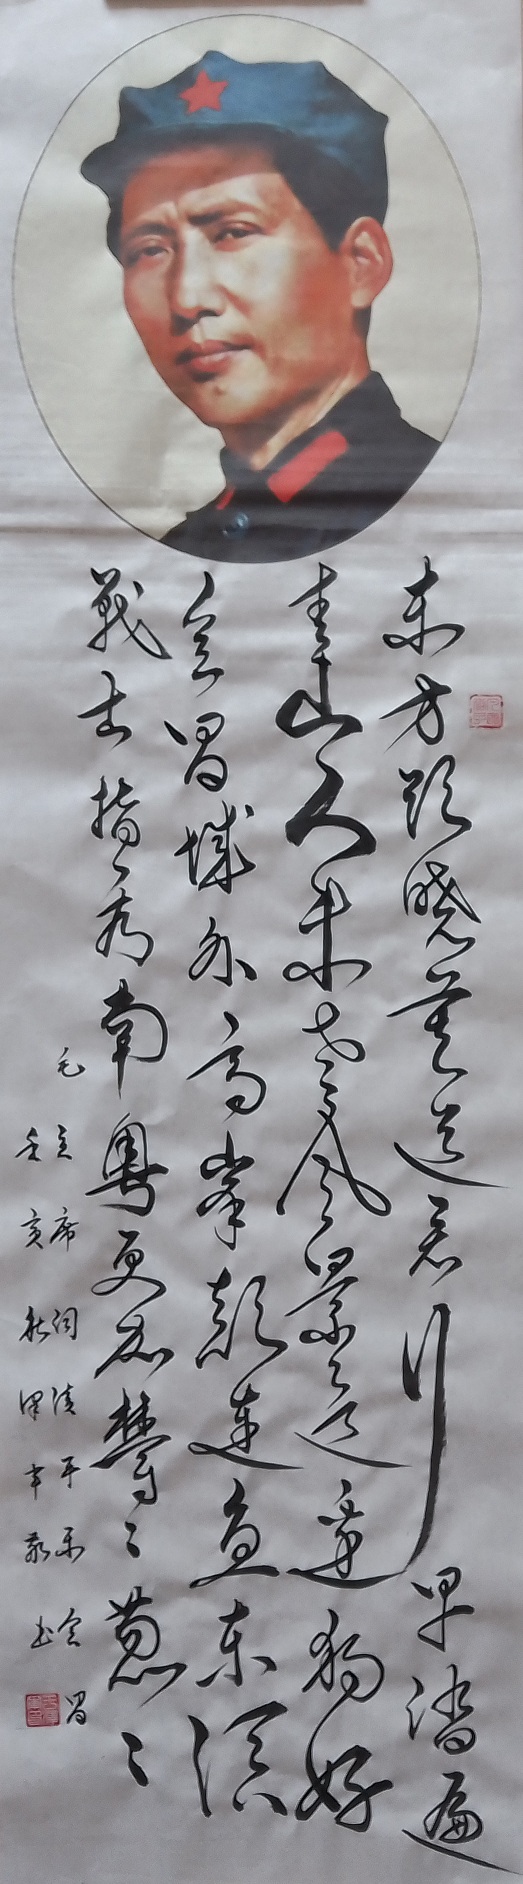 东方欲晓莫道君行早踏遍
青山人未老风景这边独好
会昌城外高峯颠连直东溟
战士指看南粤更加鬱々葱々
毛主席词清平乐会昌
秋敬书